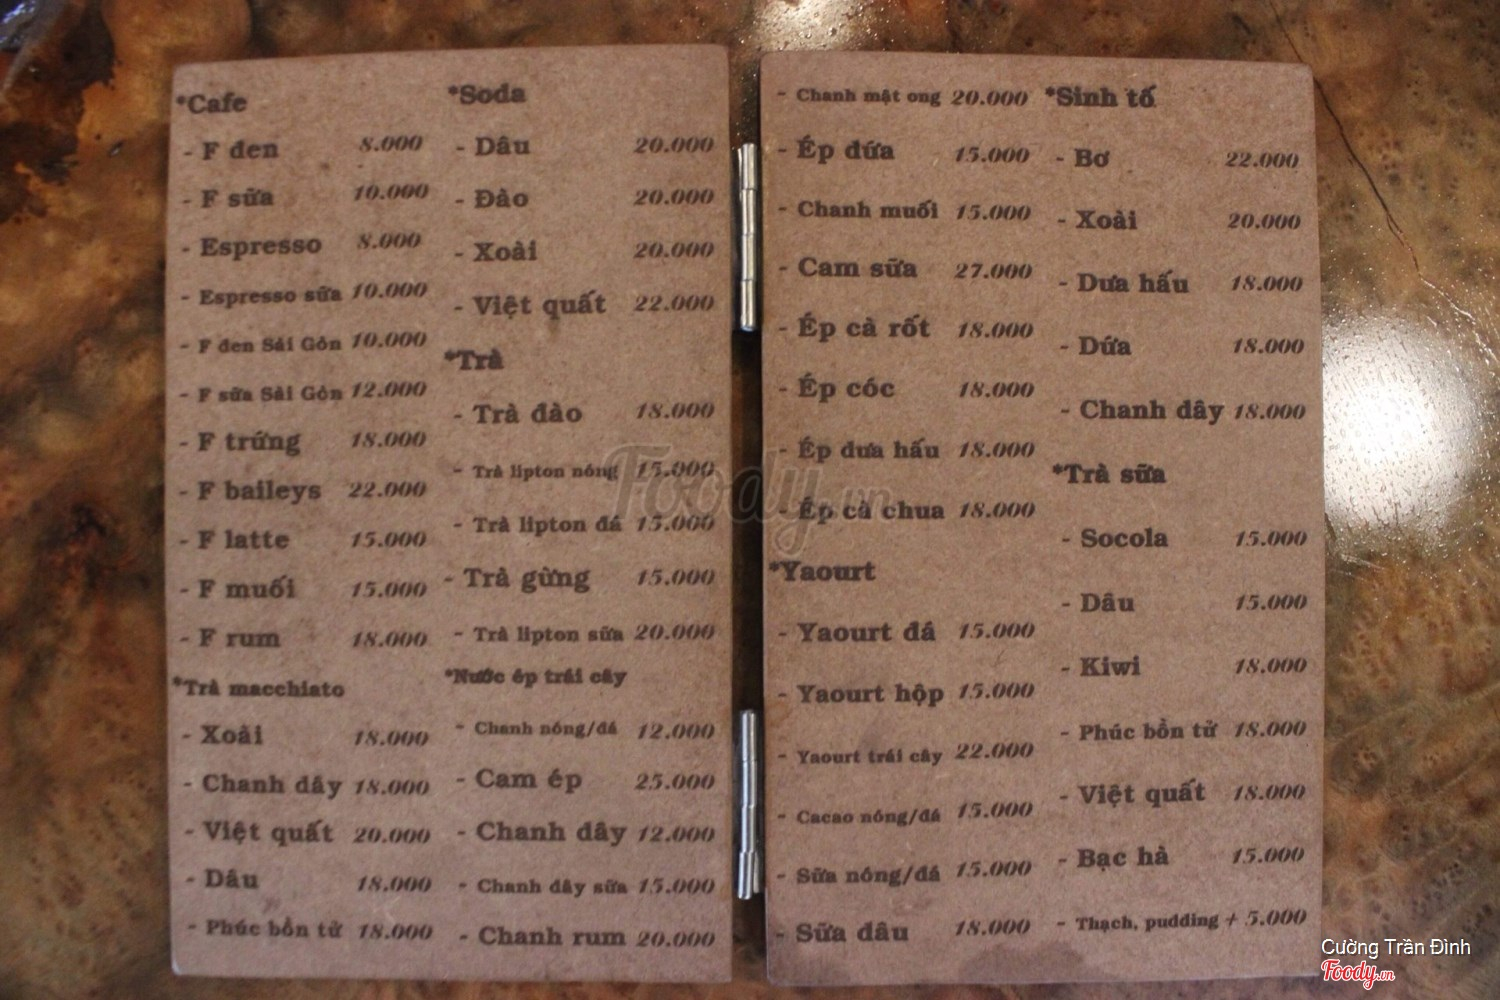 *Cafe
- F đen 8.000
- F sữa 10.000
- Espresso 8.000
- Espresso sữa 10.000
- F đen Sài Gòn 10.000
- F sữa Sài Gòn 12.000
- F trứng 18.000
- F baileys 22.000
- F latte 15.000
- F muối 15.000
- F rum 18.000
*Trà macchiato
- Xoài 18.000
- Chanh dây 18.000
- Việt quất 20.000
- Dâu 18.000
- Phúc bồn tử 18.000
*Soda
- Dâu 20.000
- Đào 20.000
- Xoài 20.000
- Việt quất 22.000
*Trà
- Trà đào 18.000
- Trà lipton nóng 15.000
- Trà lipton đá 15.000
- Trà gừng 15.000
- Trà lipton sữa 20.000
*Nước ép trái cây
- Chanh nóng/đá 12.000
- Cam ép 25.000
- Chanh dây 12.000
- Chanh dây sữa 15.000
- Chanh rum 20.000
- Chanh mật ong 20.000
- Ép dứa 15.000
- Chanh muối 15.000
- Cam sữa 27.000
- Ép cà rốt 18.000
- Ép cóc 18.000
- Ép dưa hấu 18.000
- Ép cà chua 18.000
*Yaourt
- Yaourt đá 15.000
- Yaourt hộp 15.000
- Yaourt trái cây 22.000
- Cacao nóng/đá 15.000
- Sữa nóng/đá 15.000
- Sữa dâu 18.000
*Sinh tố
- Bơ 22.000
- Xoài 20.000
- Dưa hấu 18.000
- Dứa 18.000
- Chanh dây 18.000
*Trà sữa
- Socola 15.000
- Dâu 15.000
- Kiwi 18.000
- Phúc bồn tử 18.000
- Việt quất 18.000
- Bạc hà 15.000
- Thạch, pudding + 5.000
Foody.vn
Cường Trần Đình
Foody.vn